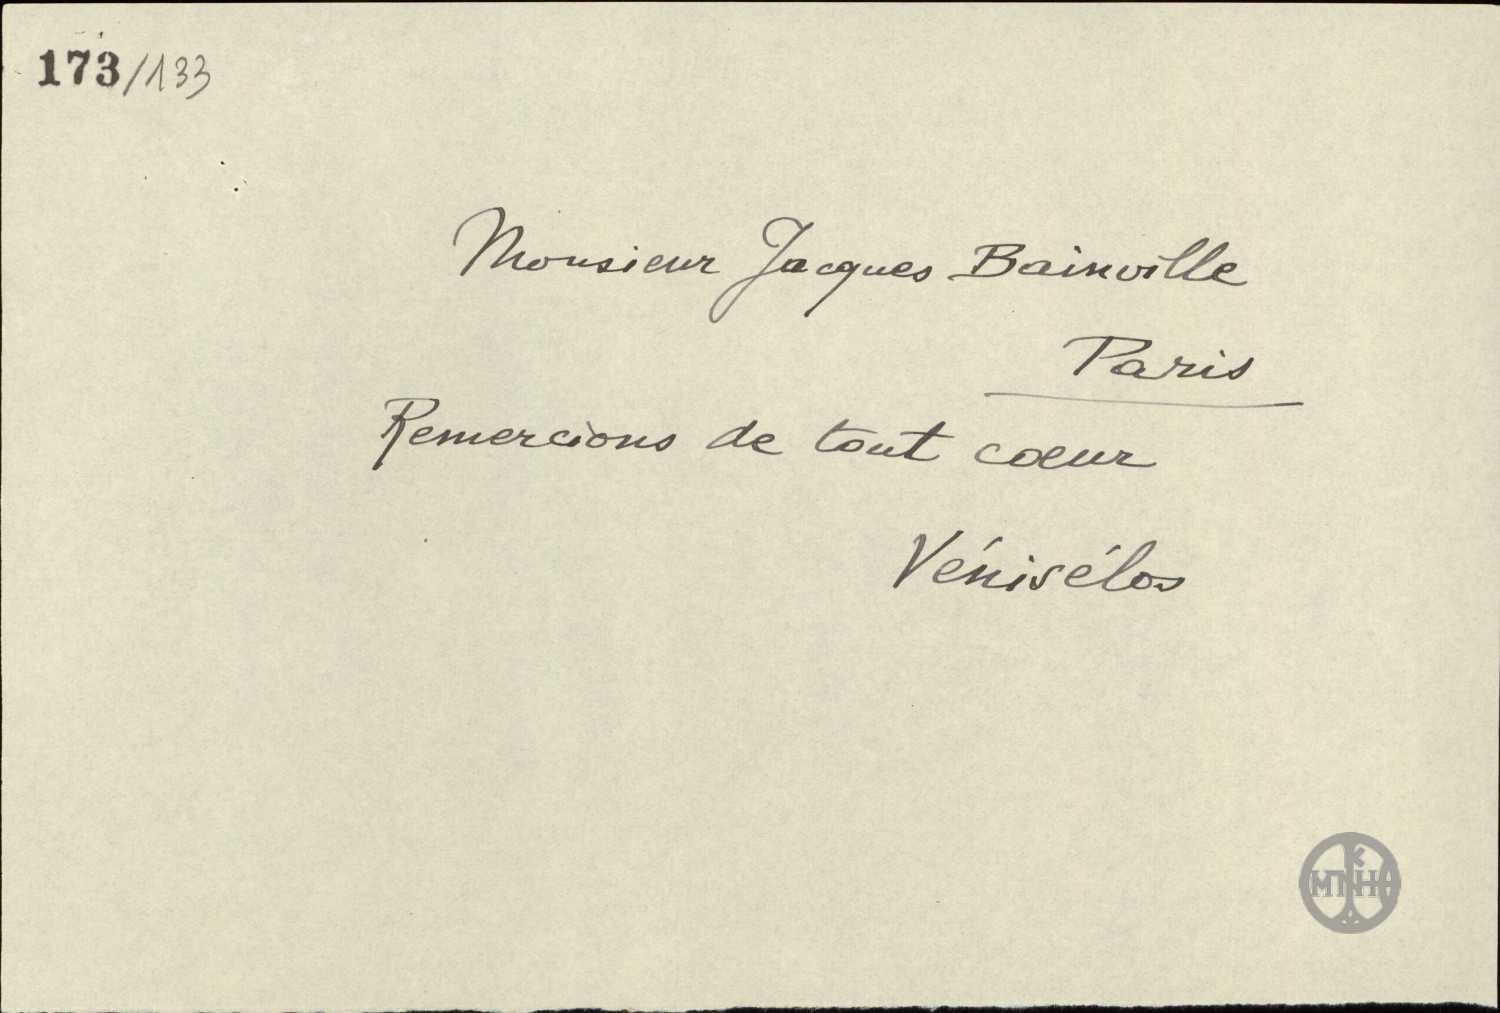 173/133
Monsieur Jacques Bainville
Paris
Remercions de tout cœur
Vénisélos